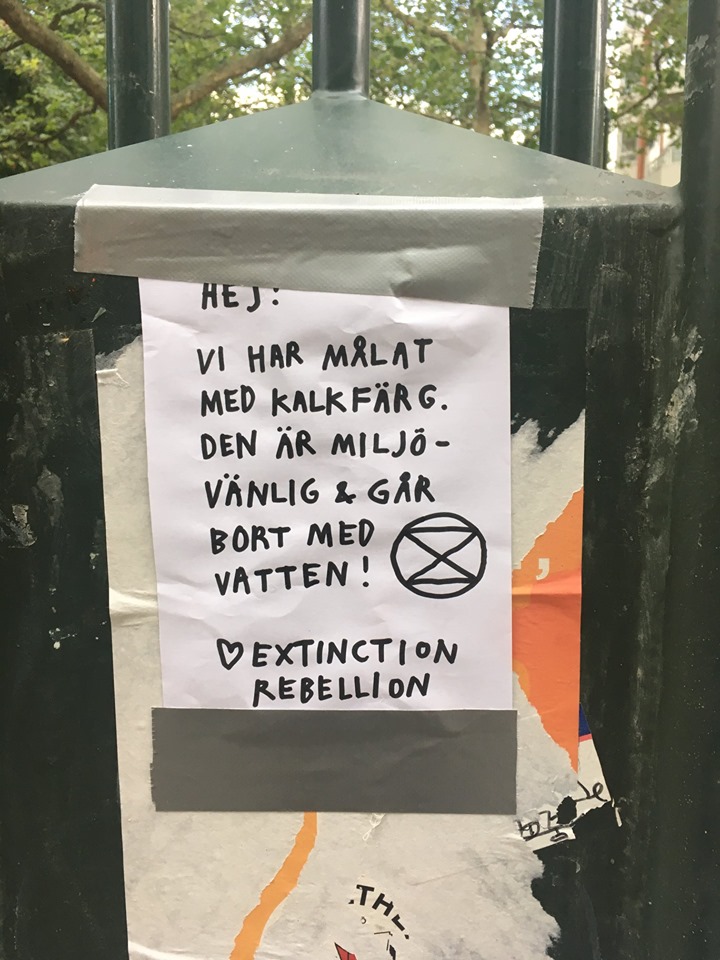 HEJ!
VI HAR MÅLAT
MED KALKFÄRG.
DEN ÄR MILJÖ-
VÄNLIG & GÅR
BORT MED
VATTEN!
♡ EXTINCTION
REBELLION
THE